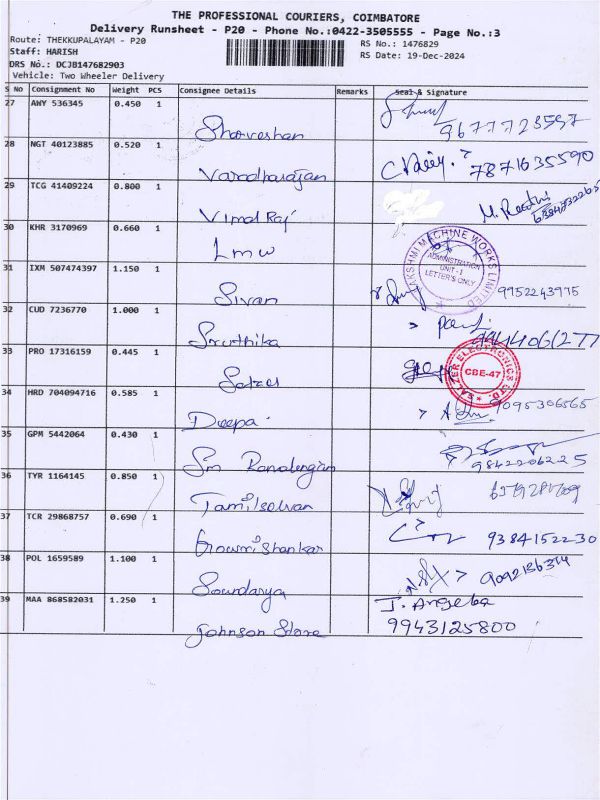 THE PROFESSIONAL COURIERS, COIMBATORE
Delivery Runsheet - P20 - Phone No.:0422-3505555 - Page No.:3
Route: THEKKUPALAYAM - P20
RS No.: 1476829
Staff: HARISH
RS Date: 19-Dec-2024
DRS No.: DCJB147682903
Vehicle: Two Wheeler Delivery
S No Consignment No Weight PCS Consignee Details Remarks Seal & Signature
27 AWY 536345 0.450 1
Sharveshan 9677723597
28 NGT 40123885 0.520 1
Varadharajan 7871635590
29 TCG 41409224 0.800 1
Vimal Raj
30 KHR 3170969 0.660 1
Lmw
LAKSHMI MACHINE WORKS LIMITED
ADMINISTRATION
UNIT-1
LETTER'S ONLY
31 IXM 507474397 1.150 1
Sivan 9952243975
32 CUD 7236770 1.000 1
Sruthika
33 PRO 17316159 0.445 1
SALZER ELECTRONICS LTD.
CBE-47
34 HRD 704094716 0.585 1
Deepa 9095306565
35 GPM 5442064 0.430 1
Sm 9842206225
36 TYR 1164145 0.850 1
Tamilselvan
37 TCR 29868757 0.690 1
Gowrishankar 9384152230
38 POL 1659589 1.100 1
Soundarya
39 MAA 868582031 1.250 1
J. Angela
Johnson Store 9943125800